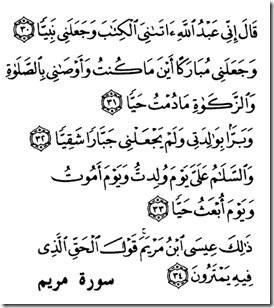 قَالَ إِنِّي عَبْدُ ٱللَّهِ ءَاتَىٰنِيَ ٱلْكِتَٰبَ وَجَعَلَنِي نَبِيًّا ٣٠
وَجَعَلَنِي مُبَارَكًا أَيْنَ مَا كُنتُ وَأَوْصَٰنِي بِٱلصَّلَوٰةِ
وَٱلزَّكَوٰةِ مَا دُمْتُ حَيًّا ٣١
وَبَرًّۢا بِوَٰلِدَتِي وَلَمْ يَجْعَلْنِي جَبَّارًا شَقِيًّا ٣٢
وَٱلسَّلَٰمُ عَلَيَّ يَوْمَ وُلِدتُّ وَيَوْمَ أَمُوتُ
وَيَوْمَ أُبْعَثُ حَيًّا ٣٣
ذَٰلِكَ عِيسَى ٱبْنُ مَرْيَمَ ۚ قَوْلَ ٱلْحَقِّ ٱلَّذِي
فِيهِ يَمْتَرُونَ ٣٤ سورة مريم